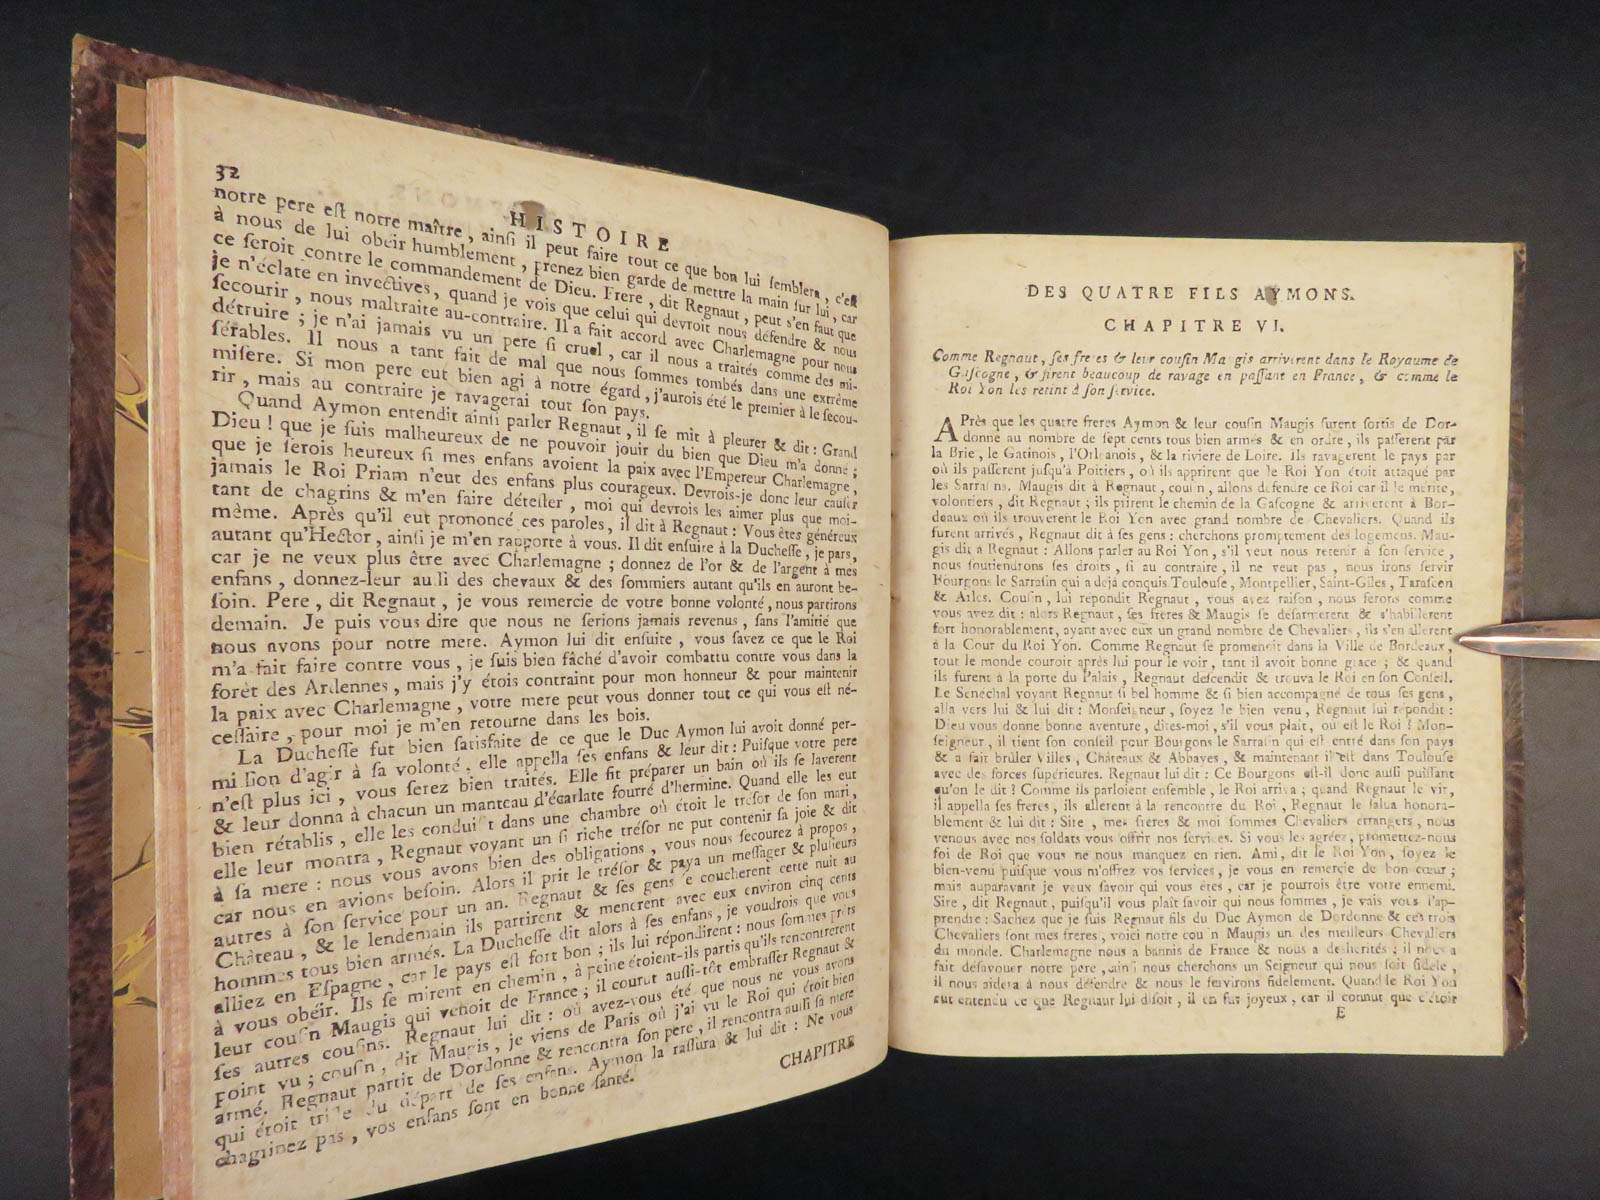 32
HISTOIRE
notre pere est notre maître, ainsi il peut faire tout ce que bon lui semblera, c'est
à nous de lui obéir humblement, prenez bien garde de mettre la main sur lui, car
ce seroit contre le commandement de Dieu. Frere, dit Regnaut, peut s'en faut que
je n'éclate en invectives, quand je vois que celui qui devroit nous défendre & nous
secourir, nous maltraite au-contraire. Il a fait accord avec Charlemagne pour nous
détruire; je n'ai jamais vu un pere si cruel, car il nous a traités comme des mi-
sérables. Il nous a tant fait de mal que nous sommes tombés dans une extrême
misere. Si mon pere eut bien agi à notre égard, j'aurois été le premier à le secou-
rir, mais au contraire je ravagerai tout son pays.
Quand Aymon entendit ainsi parler Regnaut, il se mit à pleurer & dit: Grand
Dieu! que je suis malheureux de ne pouvoir jouir du bien que Dieu m'a donné;
que je serois heureux si mes enfans avoient la paix avec l'Empereur Charlemagne,
jamais le Roi Priam n'eut des enfans plus courageux. Devrois-je donc leur causer
tant de chagrins & m'en faire détester, moi qui devrois les aimer plus que moi-
même. Après qu'il eut prononcé ces paroles, il dit à Regnaut: Vous êtes généreux
autant qu'Hector, ainsi je m'en rapporte à vous. Il dit ensuire à la Duchesse, je pars,
car je ne veux plus être avec Charlemagne; donnez de l'or & de l'argent à mes
enfans, donnez-leur aussi des chevaux & des sommiers autant qu'ils en auront be-
soin. Pere, dit Regnaut, je vous remercie de votre bonne volonté, nous partirons
demain. Je puis vous dire que nous ne serions jamais revenus, sans l'amitié que
nous avons pour notre mere. Aymon lui dit ensuite, vous savez ce que le Roi
m'a fait faire contre vous, je suis bien fâché d'avoir combattu contre vous dans la
forêt des Ardennes, mais j'y étois contraint pour mon honneur & pour maintenir
la paix avec Charlemagne, votre mere peut vous donner tout ce qui vous est né-
cessaire, pour moi je m'en retourne dans les bois.
La Duchesse fut bien satisfaite de ce que le Duc Aymon lui avoit donné per-
mission d'agir à sa volonté, elle appella ses enfans & leur dit: Puisque votre pere
n'est plus ici, vous serez bien traités. Elle fit préparer un bain où ils se laverent
& leur donna à chacun un manteau d'écarlate fourré d'hermine. Quand elle les eut
bien rétablis, elle les conduisit dans une chambre où étoit le tresor de son mari,
elle leur montra, Regnaut voyant un si riche trésor ne put contenir sa joie & dit
à sa mere: nous vous avons bien des obligations, vous nous secourez à propos,
car nous en avions besoin. Alors il prit le trésor & paya un messager & plusieurs
autres à son service pour un an. Regnaut & ses gens se coucherent cette nuit au
Château, & le lendemain ils partirent & menerent avec eux environ cinq cents
hommes tous bien armés. La Duchesse dit alors à ses enfans, je voudrois que vous
alliez en Espagne, car le pays est fort bon; ils lui répondirent: nous sommes prêts
à vous obéir. Ils se mirent en chemin, à peine étoient-ils partis qu'ils rencontrerent
leur cousin Maugis qui venoit de France; il courut aussi-tôt embrasser Regnaut &
ses autres cousins. Regnaut lui dit: où avez-vous été que nous ne vous avons
point vu; cousin, dit Maugis, je viens de Paris où j'ai vu le Roi qui étoit bien
armé. Regnaut partit de Dordonne & rencontra son pere, il rencontra aussi sa mere
qui étoit triste du départ de ses enfans. Aymon la rassura & lui dit: Ne vous
chagrinez pas, vos enfans sont en bonne santé.
CHAPITRE
DES QUATRE FILS AYMONS.
CHAPITRE VI.
Comme Regnaut, ses freres & leur cousin Maugis arriverent dans le Royaume de
Gascogne, & firent beaucoup de ravage en passant en France, & comme le
Roi Yon les retint à son service.
APrès que les quatre freres Aymon & leur cousin Maugis furent sortis de Dor-
donne au nombre de sept cents tous bien armés & en ordre, ils passerent par
la Brie, le Gatinois, l'Orleanois, & la riviere de Loire. Ils ravagerent le pays par
où ils passerent jusqu'à Poitiers, où ils apprirent que le Roi Yon étoit attaqué par
les Sarrasins. Maugis dit à Regnaut, cousin, allons défendre ce Roi car il le mérite,
volontiers, dit Regnaut; ils prirent le chemin de la Gascogne & arriverent à Bor-
deaux où ils trouverent le Roi Yon avec grand nombre de Chevaliers. Quand ils
furent arrivés, Regnaut dit à ses gens: cherchons promptement des logemens. Mau-
gis dit à Regnaut: Allons parler au Roi Yon, s'il veut nous retenir à son service,
nous soutiendrons ses droits, si au contraire, il ne veut pas, nous irons servir
Bourgons le Sarrasin qui a déjà conquis Toulouse, Montpellier, Saint-Giles, Tarascon
& Arles. Cousin, lui répondit Regnaut, vous avez raison, nous ferons comme
vous avez dit: alors Regnaut, ses freres & Maugis se désarmerent & s'habillerent
fort honorablement, ayant avec eux un grand nombre de Chevaliers, ils s'en allerent
à la Cour du Roi Yon. Comme Regnaut se promenoit dans la Ville de Bordeaux,
tout le monde couroit après lui pour le voir, tant il avoit bonne grace; & quand
ils furent à la porte du Palais, Regnaut descendit & trouva le Roi en son Conseil.
Le Sénéchal voyant Regnaut si bel homme & si bien accompagné de tous ses gens,
alla vers lui & lui dit: Monseigneur, soyez le bien venu, Regnaut lui répondit:
Dieu vous donne bonne aventure, dites-moi, s'il vous plait, où est le Roi? Mon-
seigneur, il tient son conseil pour Bourgons le Sarrasin qui est entré dans son pays
& a fait brûler Villes, Châteaux & Abbayes, & maintenant il est dans Toulouse
avec des forces supérieures. Regnaut lui dit: Ce Bourgons est-il donc aussi puissant
qu'on le dit? Comme ils parloient ensemble, le Roi arriva; quand Regnaut le vit,
il appella ses freres, ils allerent à la rencontre du Roi, Regnaut le salua honora-
blement & lui dit: Sire, mes freres & moi sommes Chevaliers étrangers, nous
venous avec nos soldats vous offrir nos services. Si vous les agréez, promettez-nous
foi de Roi que vous ne nous manquez en rien. Ami, dit le Roi Yon, soyez le
bien-venu puisque vous m'offrez vos services, je vous en remercie de bon cœur;
mais auparavant je veux savoir qui vous êtes, car je pourrois être votre ennemi.
Sire, dit Regnaut, puisqu'il vous plaît savoir qui nous sommes, je vais vous l'ap-
prendre: Sachez que je suis Regnaut fils du Duc Aymon de Dordonne & ces trois
Chevaliers sont mes freres, voici notre cousin Maugis un des meilleurs Chevaliers
du monde. Charlemagne nous a bannis de France & nous a deshérités; il nous a
fait désavouer notre pere, ainsi nous cherchons un Seigneur qui nous soit fidele,
il nous aidera à nous défendre & nous le servirons fidelement. Quand le Roi Yon
eut entendu ce que Regnaut lui disoit, il en fut joyeux, car il connut que c'étoit
E